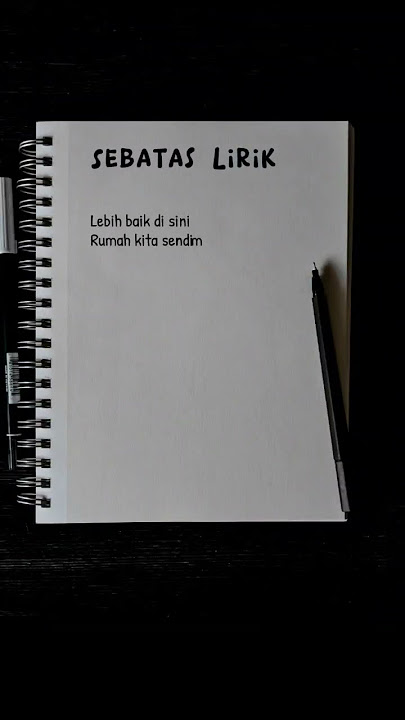 SEBATAS LiRiK
Lebih baik di sini
Rumah kita sendiri